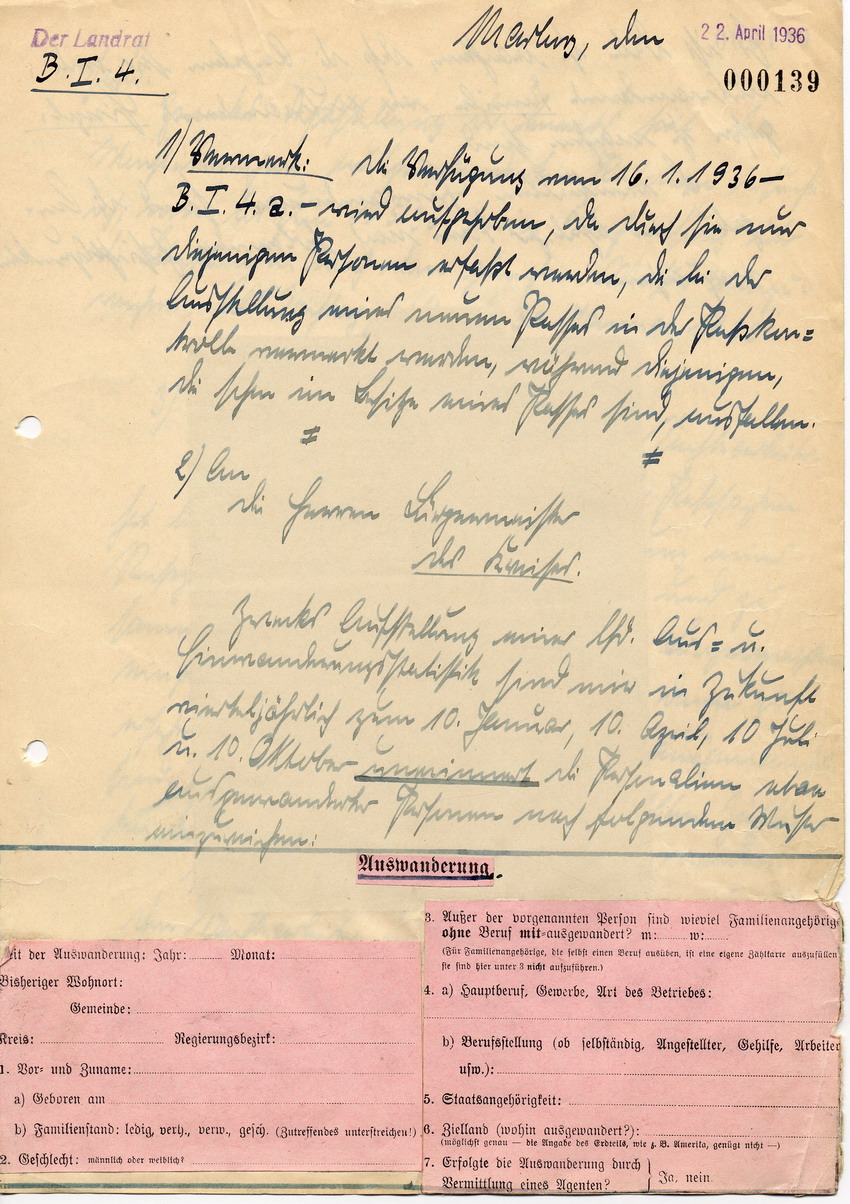 Der Landrat
B. I. 4.
Marburg, den 22. April 1936
000139
1) Vermerk: Die Verfügung vom 16. 1. 1936 –
B. I. 4. a. – wird aufgehoben, da durch sie nur
diejenigen Personen erfaßt werden, die bei der
Ausstellung eines neuen Passes in der Paßkon=
trolle vermerkt werden, während diejenigen,
die schon im Besitze eines Passes sind, ausfallen.
2) An
die Herren Bürgermeister
des Kreises.
Zwecks Aufstellung einer lfd. Aus= u.
Einwanderungsstatistik sind mir in Zukunft
vierteljährlich zum 10. Januar, 10. April, 10 Juli
u. 10. Oktober unerinnert die Personalien etwa
ausgewanderter Personen nach folgendem Muster
einzureichen:
Auswanderung.
Zeit der Auswanderung: Jahr: Monat:
Bisheriger Wohnort:
Gemeinde:
Kreis: Regierungsbezirk:
1. Vor= und Zuname:
a) Geboren am
b) Familienstand: ledig, verh., verw., gesch. (Zutreffendes unterstreichen!)
2. Geschlecht: männlich oder weiblich?
3. Außer der vorgenannten Person sind wieviel Familienangehörige
ohne Beruf mit=ausgewandert? m: w:
(Für Familienangehörige, die selbst einen Beruf ausüben, ist eine eigene Zählkarte auszufüllen
sie sind hier unter 3 nicht aufzuführen.)
4. a) Hauptberuf, Gewerbe, Art des Betriebes:
b) Berufsstellung (ob selbständig, Angestellter, Gehilfe, Arbeiter
usw.):
5. Staatsangehörigkeit:
6. Zielland (wohin ausgewandert?):
(möglichst genau — die Angabe des Erdteils, wie z. B. Amerika, genügt nicht —)
7. Erfolgte die Auswanderung durch
Vermittlung eines Agenten? Ja, nein.